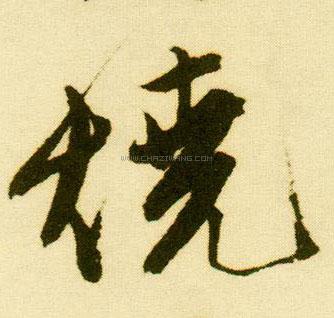 燒
WWW.CHAZIWANG.COM